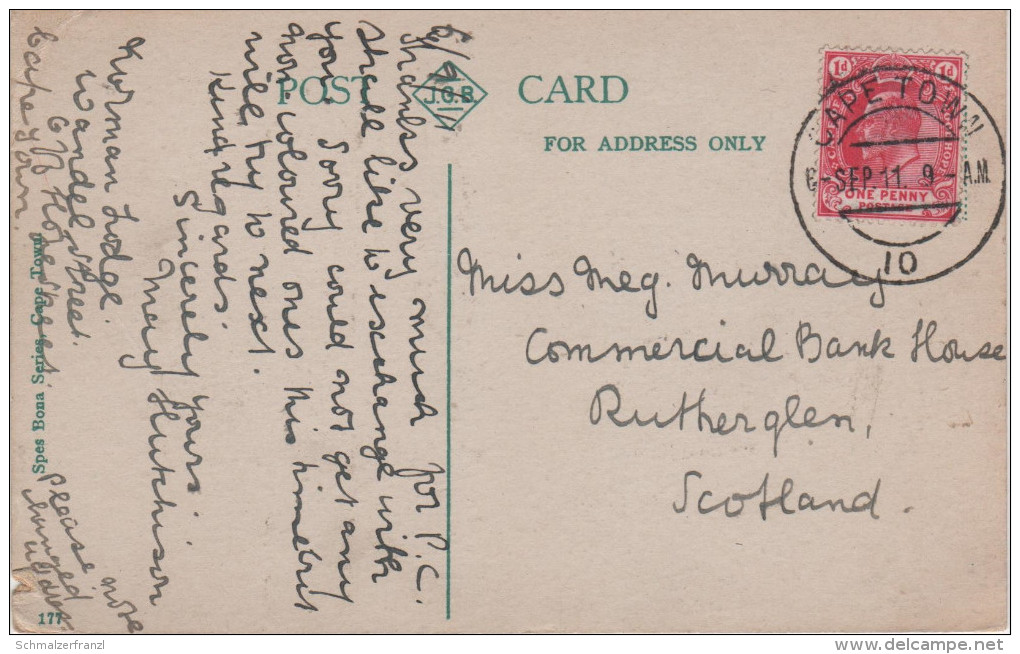 POST CARD
J.O.B.
FOR ADDRESS ONLY
1d 1d
ONE PENNY
POSTAGE
CAPE TOWN
6-SEP 11. 9-AM
10
Miss Meg. Murray
Commercial Bank House
Rutherglen,
Scotland.
6/9/11
Thanks very much for P.C.
shall like to exchange with
you. Sorry could not get any
non-coloured ones this time but
will try to next.
Kind regards.
Sincerely yours
May Hutchison
Kurman Lodge.
Wandel Street.
Off Hope Street.
Cape Town.
Please note
changed
address
Spes Bona Series, Cape Town
177
Schmalzerfranzl
delcampe.net